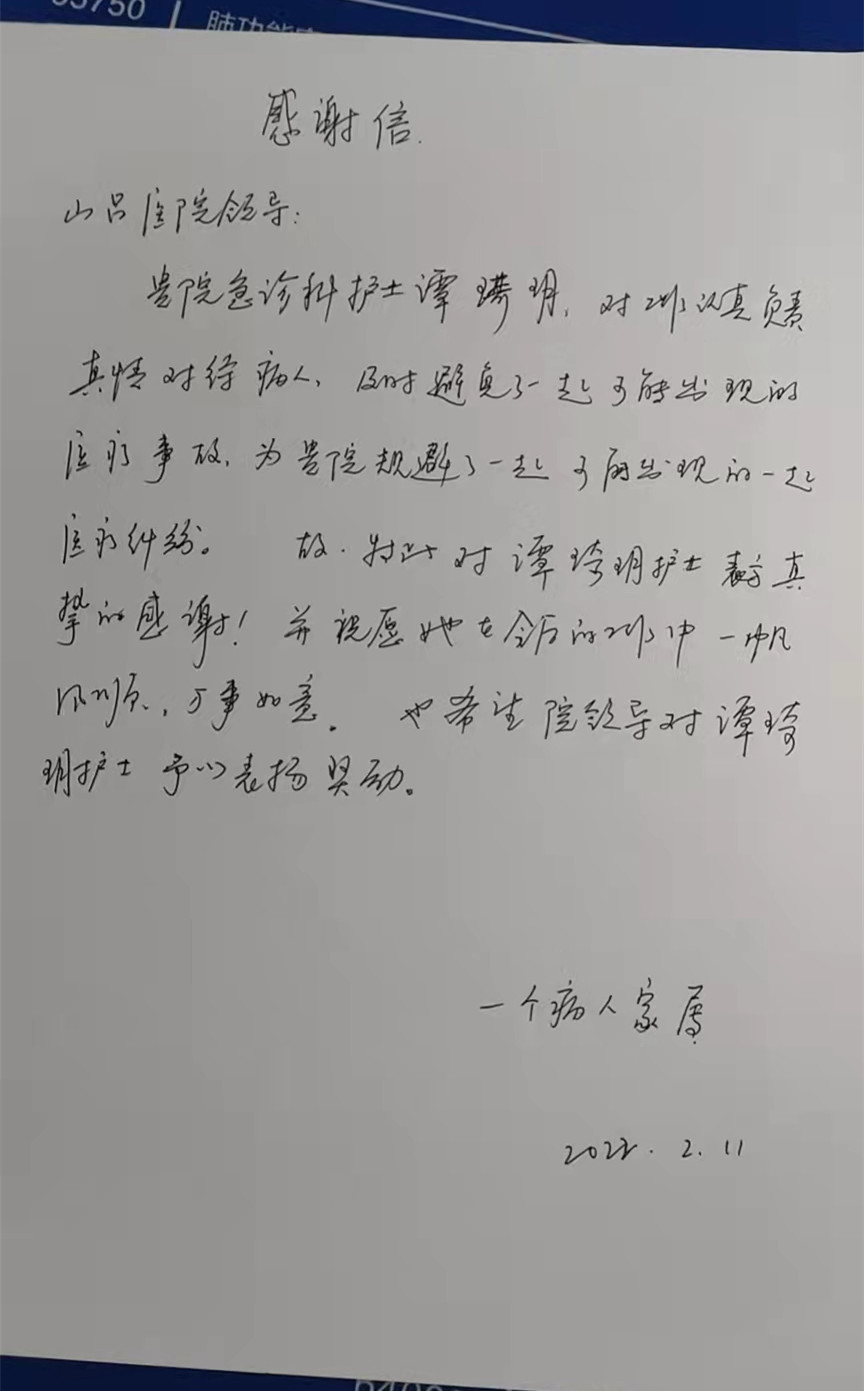 55750
肺功能室
感谢信.
山口医院领导:
贵院急诊科护士谭琦玥,对工作认真负责
真情对待病人,及时避免了一起可能出现的
医疗事故,为贵院规避了一起可能出现的一起
医疗纠纷。 故.特此对谭琦玥护士表示真
挚的感谢! 并祝愿她在今后的工作中一帆
风顺,万事如意。 也希望院领导对谭琦
玥护士予以表扬奖励。
一个病人家属
2022.2.11